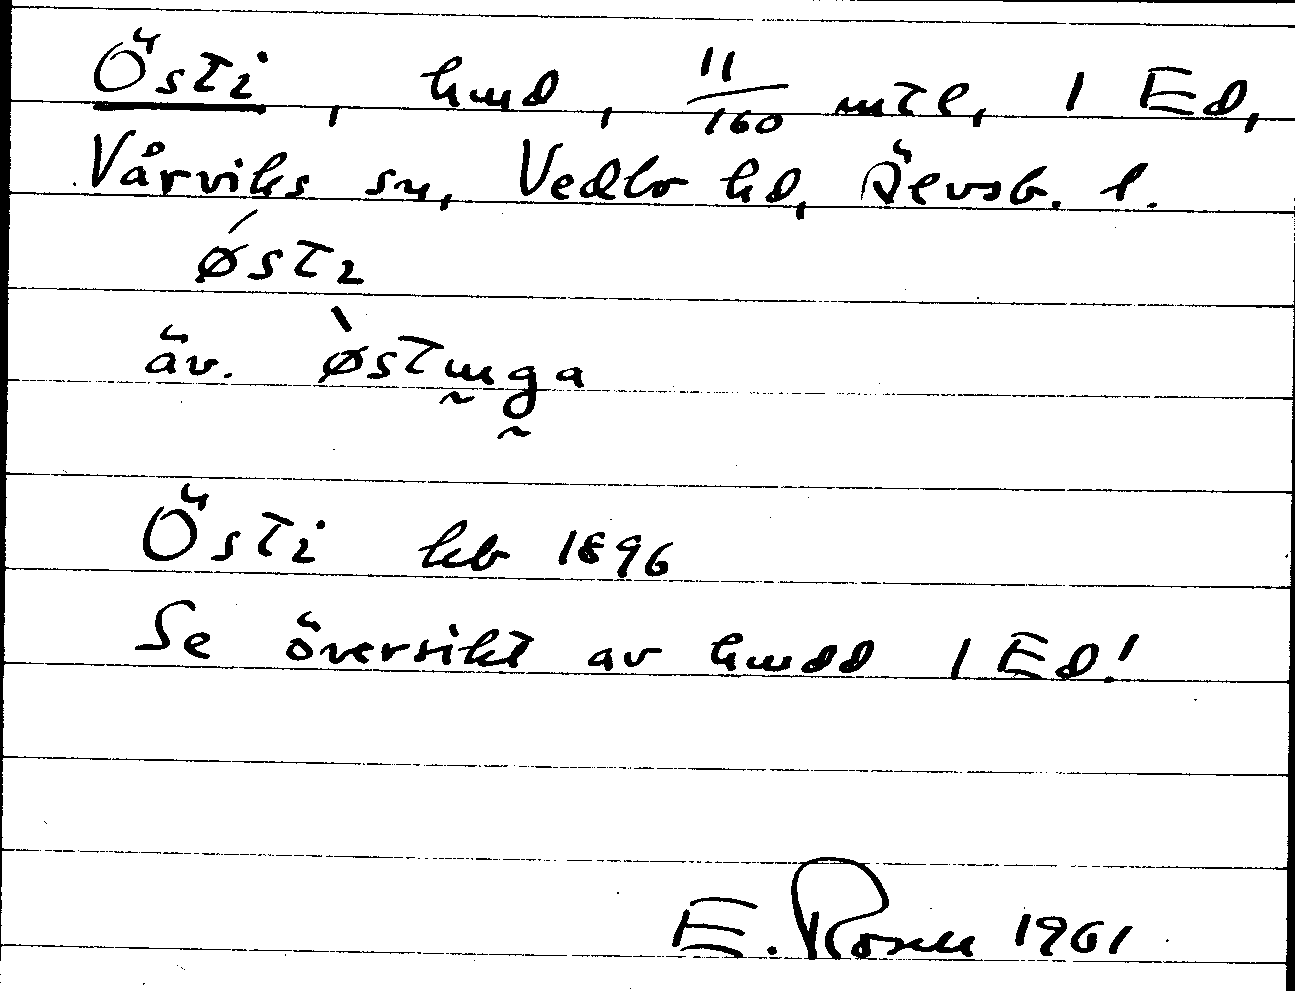 Östi, hmd, 11/160 mtl, 1 Ed,
Vårviks sn, Vedbo hd, Älvsb. l.
ǿstɩ
äv. ø̀stɯ̰g̰a
Östi kb 1896
Se översikt av hmdd 1 Ed!
E. Rosell 1961